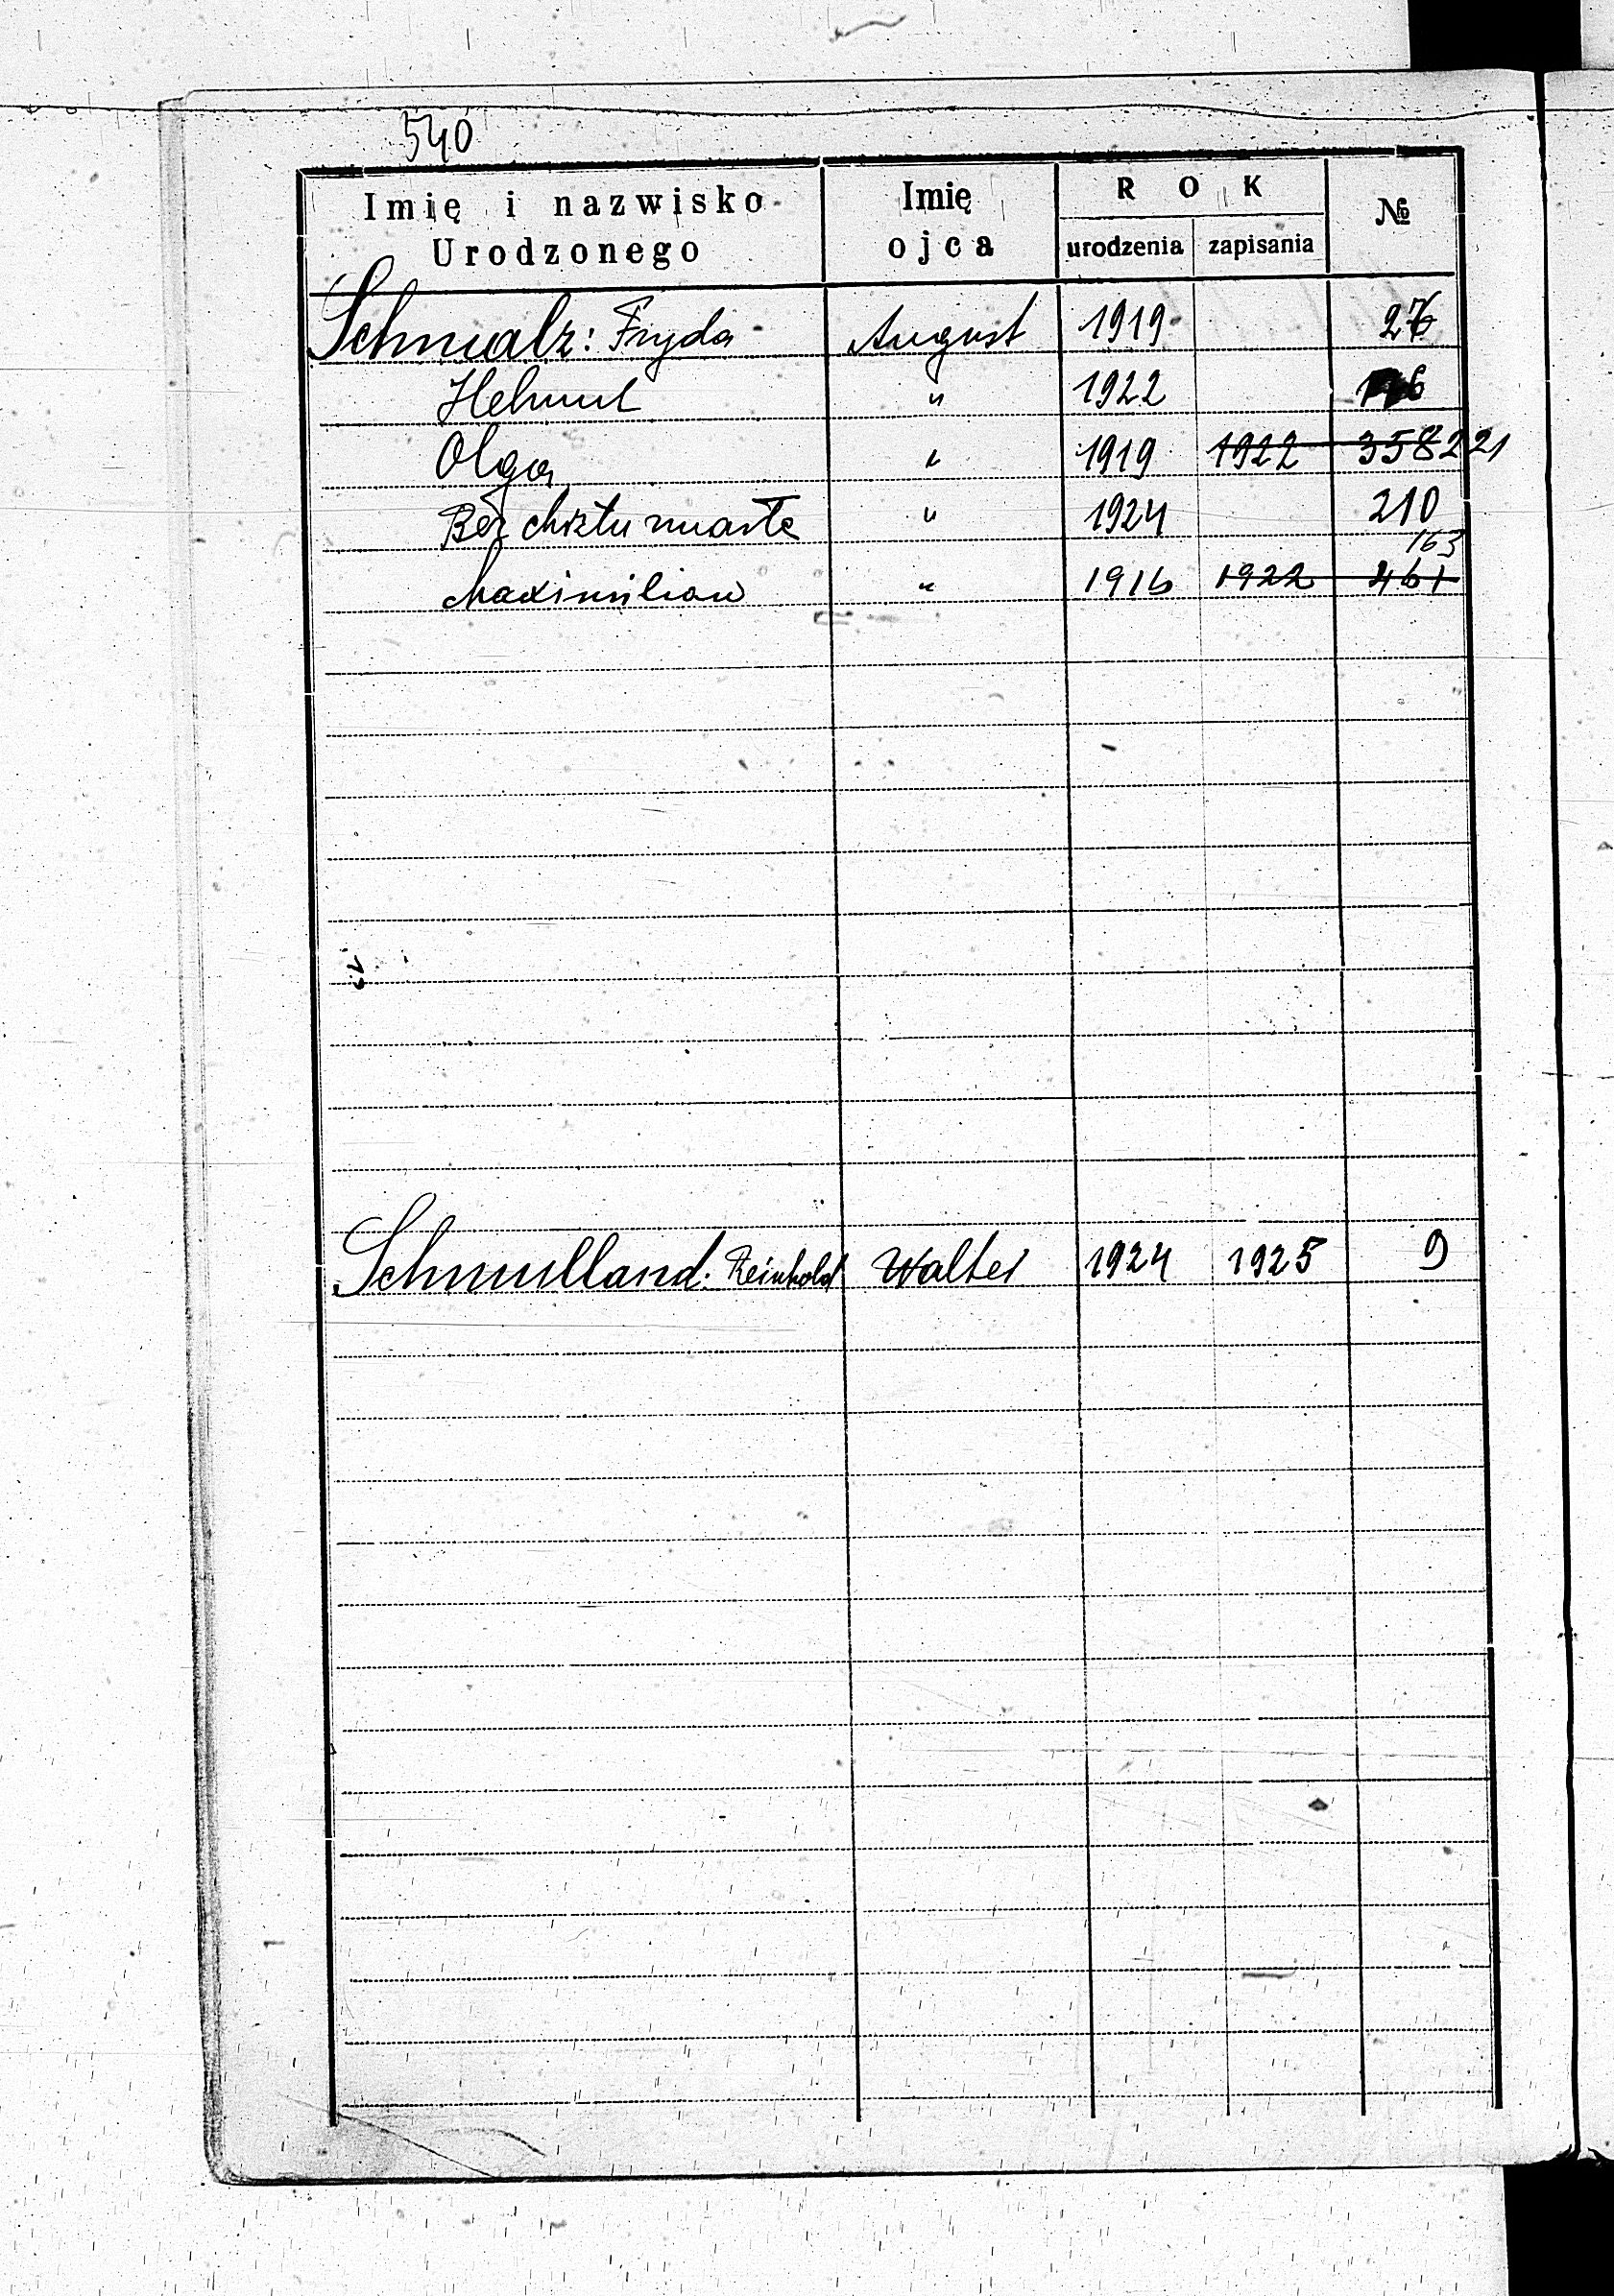 540
Imię i nazwisko Urodzonego | Imię ojca | ROK urodzenia | zapisania | №
Schmalz: Fryda August 1919
Helmut " 1922
Olga " 1919 1922 358 221
Bez chrztu zmarłe " 1924 210
163
Maximilian " 1916 1922 461
Schmulland: Reinhold Walter 1924 1925 9